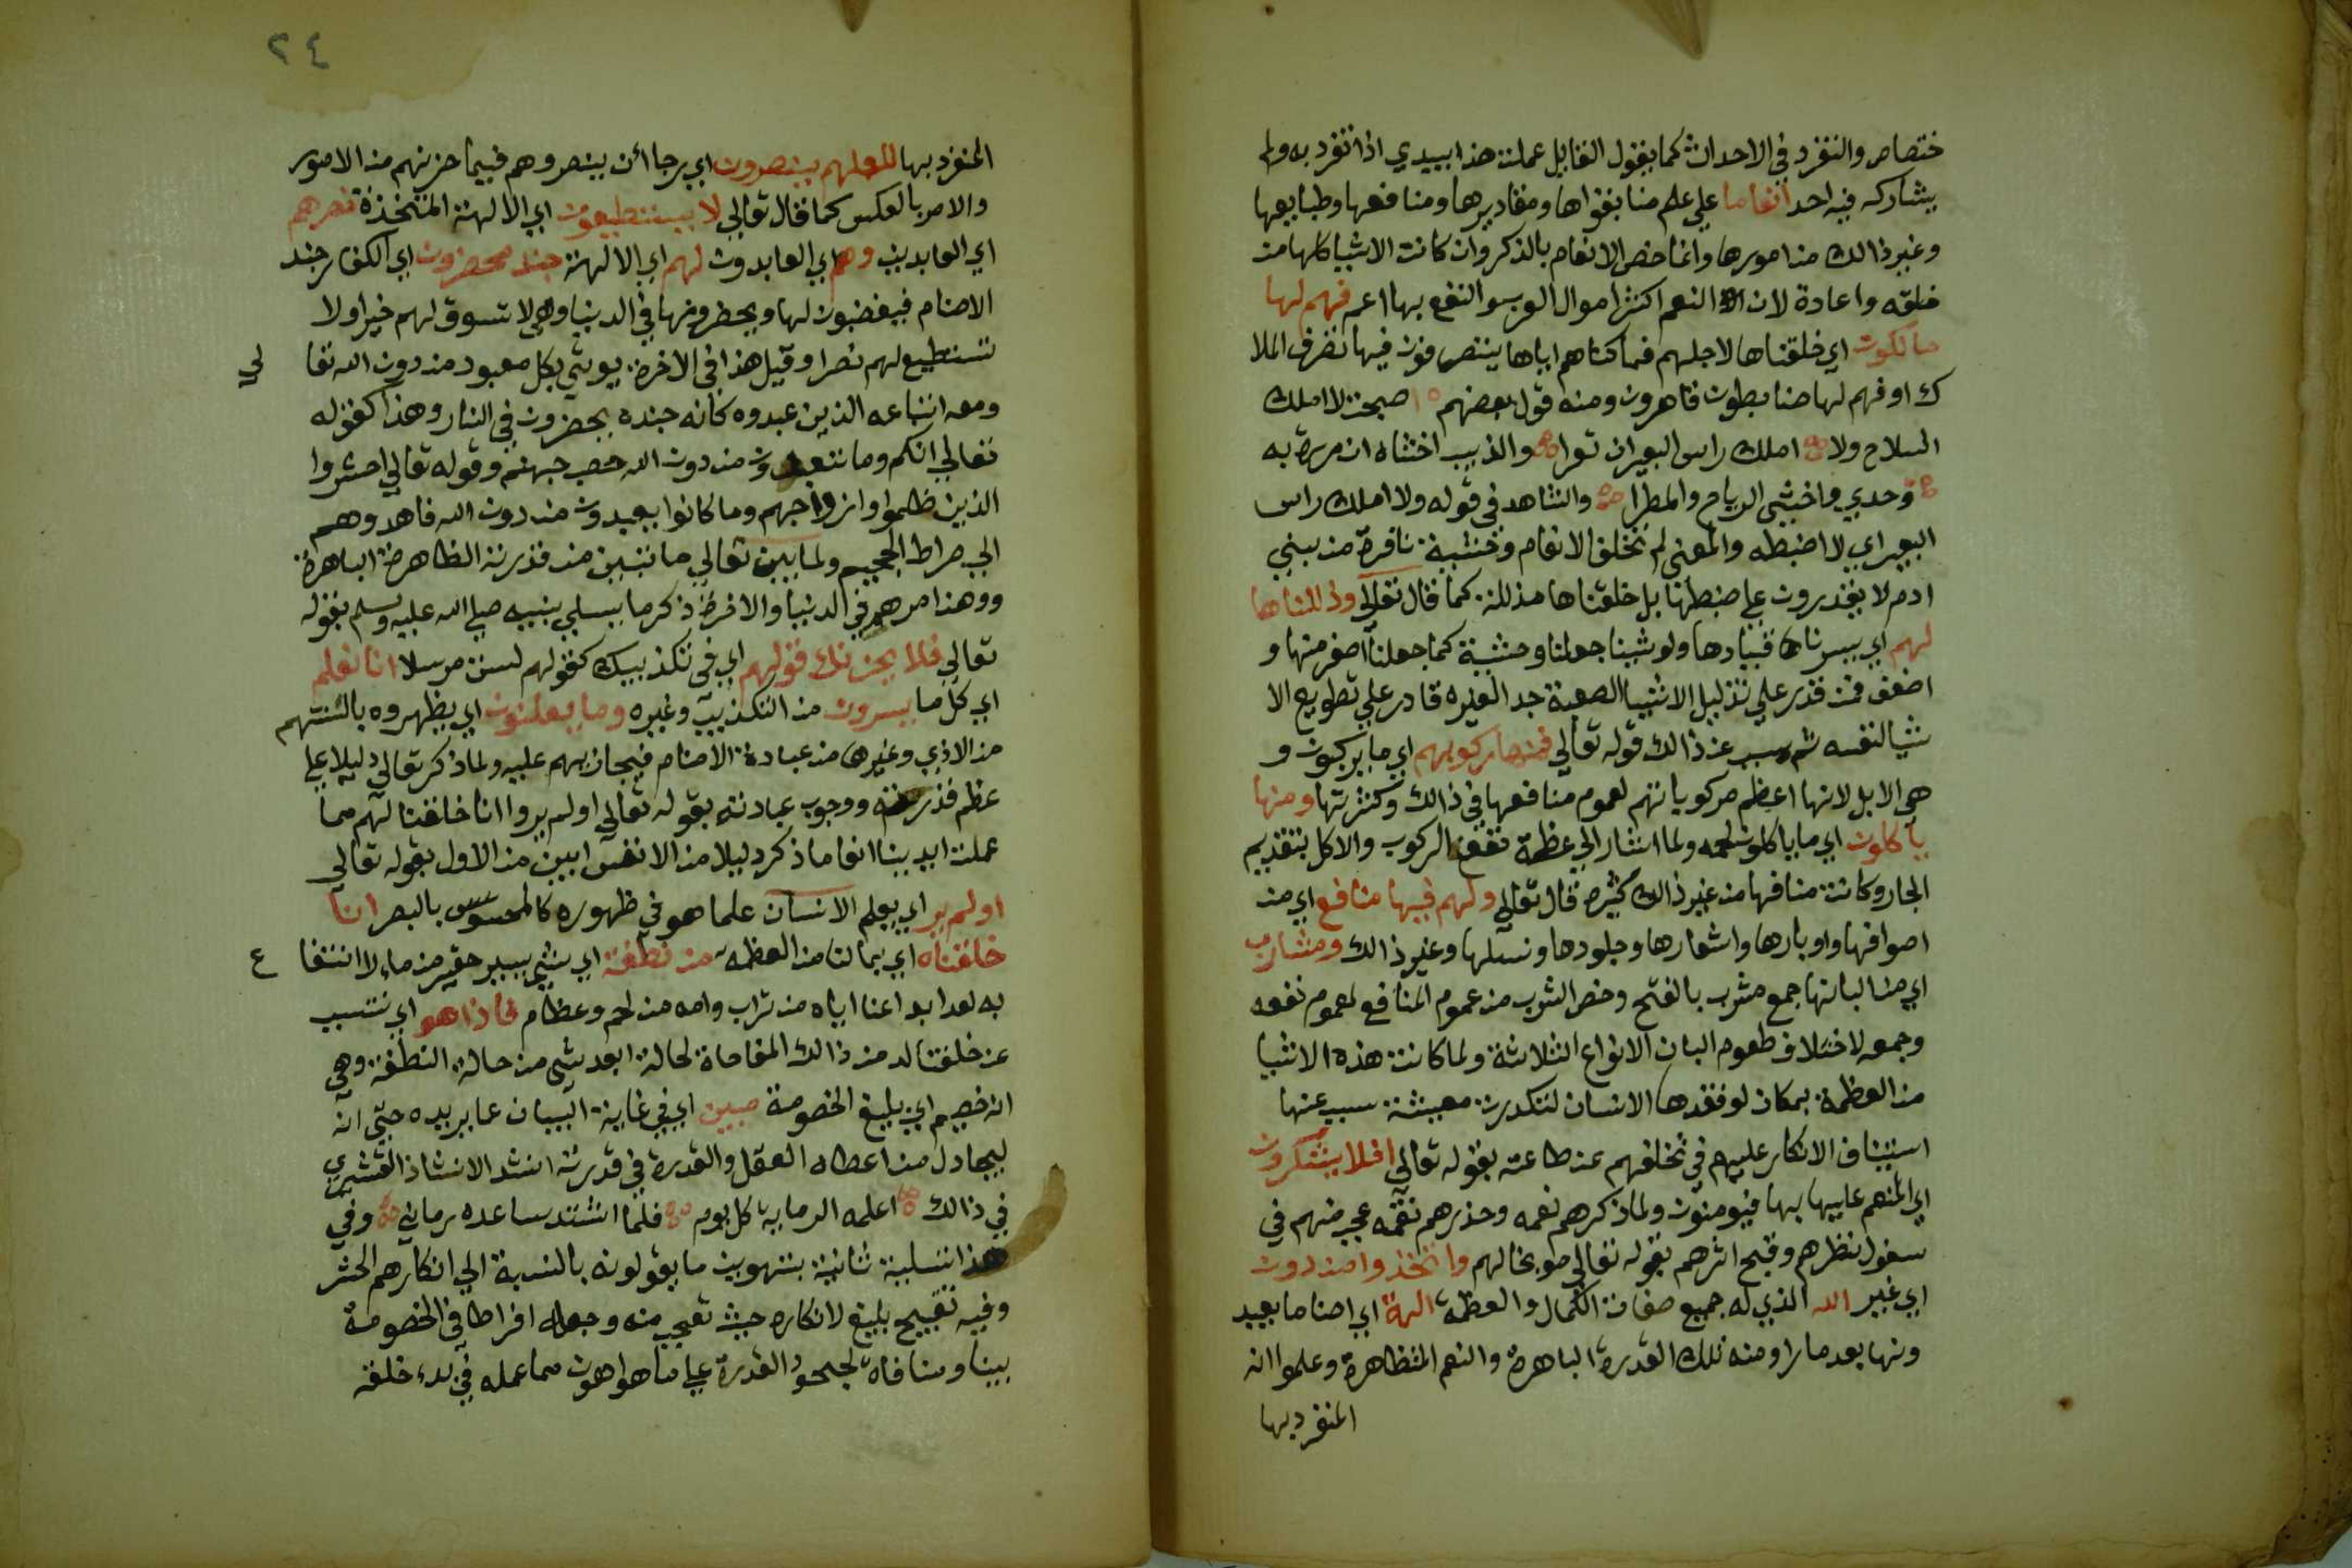 ختصاص والتفرد في الاحداث كما يقول القايل عملت هذا بيدي اذا تفرد به ولم
يشاركه فيه احد انعاما علي علم منا بقواها ومقاديرها ومنافعها وطبايعها
وغير ذالك من امورها وانما خص الانعام بالذكر وان كانت الاشيا كلها من
خلقه واعادة لان النعم اكثر اموال العرب والنفع بها اعم فهم لها
مالكون اي خلقناها لاجلهم فملكناهم اياها يتصرفون فيها تصرف الملا
ك او فهم لها ضابطون قاهرون ومنه قول بعضهم اصبحت لا املك
السلاح ولا املك راس البعير ان نفرا والذيب اخشاه ان مررت به
وحدي واخشي الرياح والمطرا والشاهد في قوله ولا املك راس
البعير اي لا اضبطه والمعني لم نخلق الانعام وحشية نافرة من بني
ادم لا يقدرون علي ضبطها بل خلقناها مذللة كما قال تعالي وذللناها
لهم اي يسرنا قيادها ولو شينا جعلنا وحشية كما جعلنا اصغر منها و
اضعف فمن قدر علي تذليل الاشيا الصعبة جدا لغيره قادر علي تطويع الا
شيا لنفسه ثم سبب عن ذالك قوله تعالي فمنها ركوبهم اي ما يركبون و
هي الابل لانها اعظم مركوباتهم لعموم منافعها في ذالك وكثرتها ومنها
ياكلون اي ما ياكلون لحمه ولما اشار الي عظمة نفع الركوب والاكل بتقديم
الجار وكانت منافعها من غير ذالك كثيرة قال تعالي ولهم فيها منافع اي من
اصوافها واوبارها واشعارها وجلودها ونسلها وغير ذالك ومشارب
اي من البانها جمع مشرب بالفتح وخص الشرب من عموم المنافع لعموم نفعه
وجمعه لاختلاف طعوم البان الانواع الثلاثة ولما كانت هذه الاشيا
من العظمة بمكان لو فقدها الانسان لتكدرت معيشة سبب عنها
استيناف الانكار عليهم في تخلفهم عن طاعته بقوله تعالي افلا يشكرون
اي المنعم عليها بها فيومنون ولما ذكرهم نعمه وحذرهم نقمه عجب منهم في
سفول نظرهم وقبح اثرهم بقوله تعالي موبخا لهم واتخذوا من دون
اي غير الله الذي له جميع صفات الكمال والعظمة الهة اي اصناما يعبد
ونها بعد ما راو منه تلك القدرة الباهرة والنعم المتظاهرة وعلموا انه
المنفرد بها
٢٤
المنفرد بها لعلهم ينصرون اي رجا أن ينصروهم فيما حزنهم من الامور
والامر بالعكس كما قال تعالي لا يستطيعون اي الالهة المتخذة نصرهم
اي العابدين وهم اي العابدون لهم اي الالهة جند محضرون اي الكفار جند
الاصنام فيغضبون لها ويحضرونها في الدنيا وهي لا تسوق لهم خيرا ولا
تستطيع لهم نصرا وقيل هذا في الاخرة يوتي بكل معبود من دون الله تعا لي
ومعه اتباعه الذين عبدوه كانه جنده يحضرون في النار وهذا كقوله
تعالي انكم وما تعبدون من دون الله حصب جهنم وقوله تعالي احشروا
الذين ظلموا وازواجهم وما كانوا يعبدون من دون الله فاهدوهم
الي صراط الجحيم ولما بين تعالي ما تبين من قدرته الظاهرة الباهرة
ووهذا امرهم في الدنيا والاخرة ذكر ما يسلي بنبيه صلي الله عليه وسلم بقوله
تعالي فلا يحزنك قولهم اي في تكذيبك كقولهم لست مرسلا انا نعلم
اي كل ما يسرون من التكذيب وغيره وما يعلنون اي يظهروه بالسنتهم
من الاذي وغيرها من عبادة الاصنام فيجازيهم عليه ولما ذكر تعالي دليلا علي
عظم قدرته ووجوب عبادته بقوله تعالي اولم يروا انا خلقنا لهم مما
عملت ايدينا انعاما ذكر دليلا من الانفس ابين من الاول بقوله تعالي
اولم ير اي يعلم الانسان علما هو في ظهوره كالمحسوس بالبصر انا
خلقناه اي بما لنا من العظمة من نطفة اي شي يسير حقير من ماء لا انتفا ع
به بعد ابداعنا اياه من تراب وامه من لحم وعظام فاذا هو اي نتسبب
عن خلقنا له من ذالك المفاجاة لحالة ابعد شي من حالة النطفة وهي
انه خصيم اي بليغ الخصومة مبين اي في غاية البيان عما يريده حتي انه
ليجادل من اعطاه العقل والقدرة في قدرته انشد الاستاذ القشيري
في ذالك اعلمه الرماية كل يوم فلما اشتد ساعده رماني وفي
هذا تسلية ثانية بتهوين ما يقولونه بالنسبة الي انكارهم الحشر
وفيه تقبيح بليغ لانكاره حيث تعجب منه وجعله افراطا في الخصومة
بينا ومنافاة لجحود القدرة علي ما هو اهون مما عمله في بدء خلقه